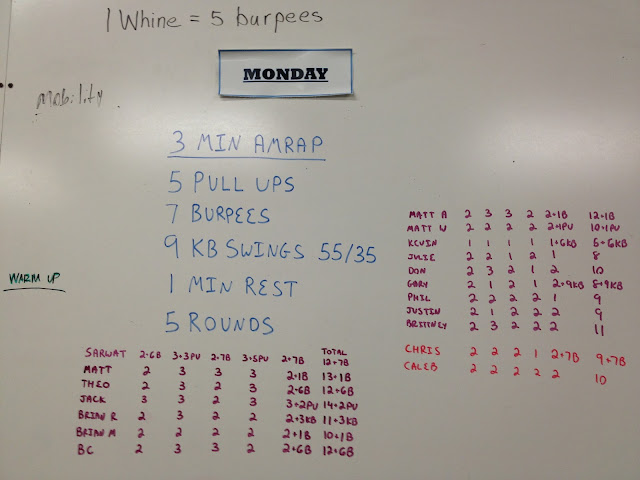 1 Whine = 5 burpees
MONDAY
mobility
3 MIN AMRAP
5 PULL UPS
7 BURPEES
9 KB SWINGS 55/35
1 MIN REST
5 ROUNDS
WARM UP
MATT A 2 3 3 2 2+1B 12+1B
MATT W 2 2 2 2 2+1PU 10+1PU
KEVIN 1 1 1 1 1+6KB 5+6KB
JULIE 2 2 1 2 1 8
DON 2 3 2 1 2 10
GARY 2 1 2 1 2+9KB 8+9KB
PHIL 2 2 2 2 1 9
JUSTIN 2 1 2 2 2 9
BRITTNEY 2 3 2 2 2 11
CHRIS 2 2 2 1 2+7B 9+7B
CALEB 2 2 2 2 2 10
TOTAL
SARWAT 2+6B 3+3PU 2+7B 3+5PU 2+7B 12+7B
MATT 2 3 3 3 2+1B 13+1B
THEO 2 3 2 3 2+6B 12+6B
JACK 3 3 2 3 3+2PU 14+2PU
BRIAN R 2 3 2 2 2+3KB 11+3KB
BRIAN M 2 2 2 2 2+1B 10+1B
BC 2 3 3 2 2+6B 12+6B